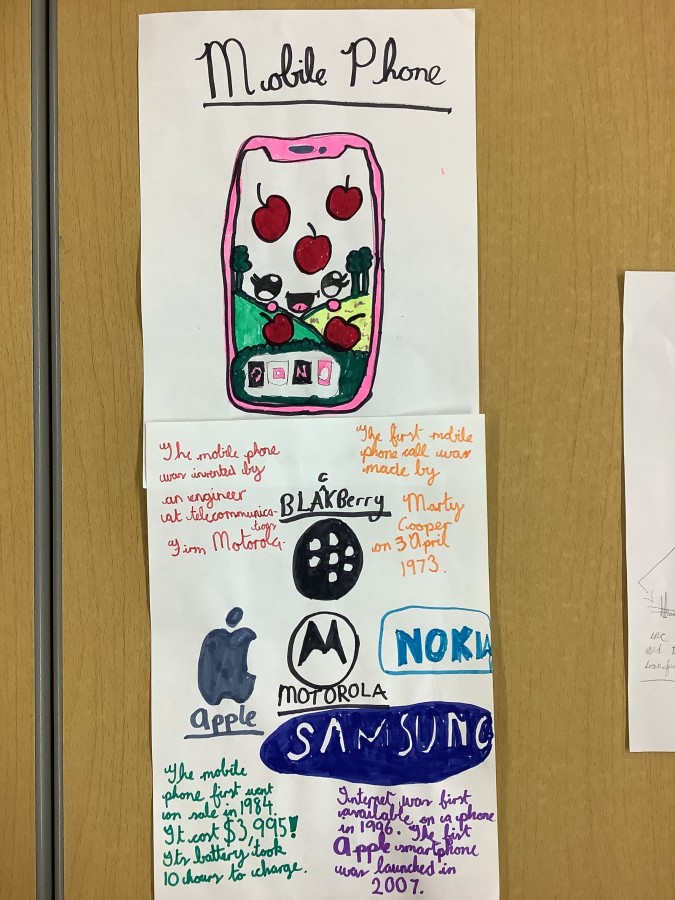 Mobile Phone
The mobile phone
was invented by
an engineer
at telecommunica-
tions
Firm Motorola.
The first mobile
phone call was
made by
Marty
Cooper
on 3 April
1973.
c
BLAKBerry
M
MOTOROLA
NOKIA
apple
SAMSUNG
The mobile
phone first went
on sale in 1984.
It cost $3,995!
Its battery took
10 hours to charge.
Internet was first
available on a phone
in 1996. The first
Apple smartphone
was launched in
2007.